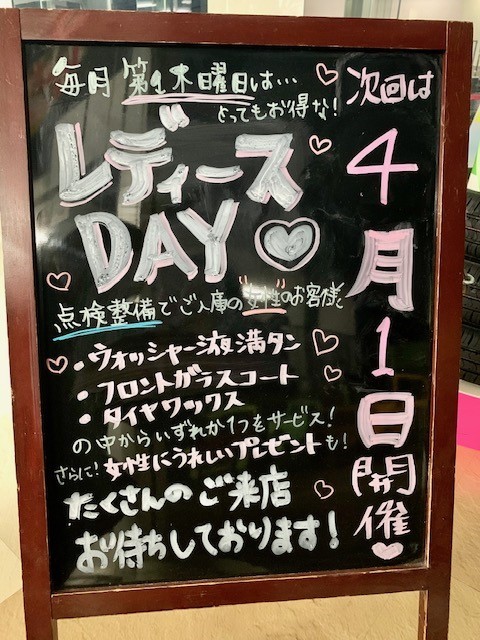 毎月 第1木曜日は…
とってもお得な!
レディース
DAY
点検整備でご入庫の"女性"のお客様に
・ウォッシャー液満タン
・フロントガラスコート
・タイヤワックス
の中からいずれか1つをサービス!
さらに!女性にうれしいプレゼントも!
たくさんのご来店
お待ちしております!
次回は
4月1日開催